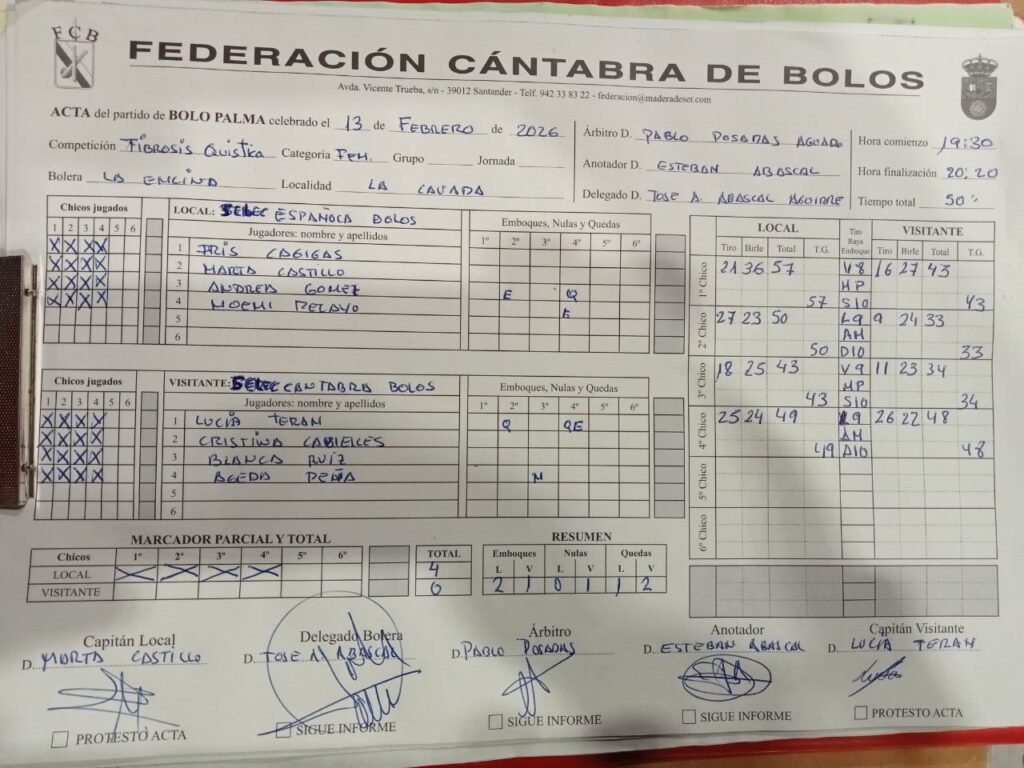 FCB
FEDERACIÓN CÁNTABRA DE BOLOS
Avda. Vicente Trueba, s/n - 39012 Santander - Telf. 942 33 83 22 - federacion@maderadeser.com
ACTA del partido de BOLO PALMA celebrado el 13 de FEBRERO de 2026
Competición FIBROSIS QUISTICA Categoría FEM. Grupo Jornada
Bolera LA ENCINA Localidad LA CAVADA
Árbitro D. PABLO POSADAS AGUADO
Anotador D. ESTEBAN ABASCAL
Delegado D. JOSE A ABASCAL AGUIRRE
Hora comienzo 19:30
Hora finalización 20:20
Tiempo total 50
Chicos jugados
1 2 3 4 5 6
X X X X
X X X X
X X X X
X X X X
LOCAL: SELEC ESPAÑOLA BOLOS
Jugadores: nombre y apellidos
1 IRIS CAGIGAS
2 MARTA CASTILLO
3 ANDREA GOMEZ
4 NOEMI PELAYO
5
6
Emboques, Nulas y Quedas
1º 2º 3º 4º 5º 6º
E Q
E
Chicos jugados
1 2 3 4 5 6
X X X X
X X X X
X X X X
X X X X
VISITANTE: SELEC CANTABRA BOLOS
Jugadores: nombre y apellidos
1 LUCÍA TERAN
2 CRISTINA CABIELLES
3 BLANCA RUÍZ
4 AGEDA PEÑA
5
6
Emboques, Nulas y Quedas
1º 2º 3º 4º 5º 6º
Q QE
N
LOCAL Tiro Raya Emboque VISITANTE
Tiro Birle Total T.G. Tiro Birle Total T.G.
1º Chico 21 36 57 V8 16 27 43
MP
57 S10 43
2º Chico 27 23 50 L9 9 24 33
AM
50 D10 33
3º Chico 18 25 43 V9 11 23 34
MP
43 S10 34
4º Chico 25 24 49 L9 26 22 48
AM
49 D10 48
5º Chico
6º Chico
MARCADOR PARCIAL Y TOTAL
Chicos 1º 2º 3º 4º 5º 6º TOTAL
LOCAL X X X X 4
VISITANTE 0
RESUMEN
Emboques Nulas Quedas
L V L V L V
2 1 0 1 1 2
Capitán Local
D. MARTA CASTILLO
PROTESTO ACTA
Delegado Bolera
D. JOSE A ABASCAL
SIGUE INFORME
Árbitro
D. PABLO POSADAS
SIGUE INFORME
Anotador
D. ESTEBAN ABASCAL
SIGUE INFORME
Capitán Visitante
D. LUCÍA TERAN
PROTESTO ACTA